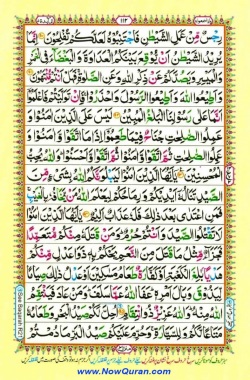 ١١٣
رِجْسٌ مِّنْ عَمَلِ الشَّيْطٰنِ فَاجْتَنِبُوْهُ لَعَلَّكُمْ تُفْلِحُوْنَ اِنَّمَا
يُرِيْدُ الشَّيْطٰنُ اَنْ يُّوْقِعَ بَيْنَكُمُ الْعَدَاوَةَ وَالْبَغْضَآءَ فِي الْخَمْرِ
وَالْمَيْسِرِ وَيَصُدَّكُمْ عَنْ ذِكْرِ اللّٰهِ وَعَنِ الصَّلٰوةِ فَهَلْ اَنْتُمْ مُّنْتَهُوْنَ
وَاَطِيْعُوا اللّٰهَ وَاَطِيْعُوا الرَّسُوْلَ وَاحْذَرُوْا فَاِنْ تَوَلَّيْتُمْ فَاعْلَمُوْٓا
اَنَّمَا عَلٰى رَسُوْلِنَا الْبَلٰغُ الْمُبِيْنُ لَيْسَ عَلَى الَّذِيْنَ اٰمَنُوْا وَ
عَمِلُوا الصّٰلِحٰتِ جُنَاحٌ فِيْمَا طَعِمُوْٓا اِذَا مَا اتَّقَوْا وَّاٰمَنُوْا وَ
عَمِلُوا الصّٰلِحٰتِ ثُمَّ اتَّقَوْا وَّاٰمَنُوْا ثُمَّ اتَّقَوْا وَّاَحْسَنُوْا وَاللّٰهُ يُحِبُّ
الْمُحْسِنِيْنَ يٰٓاَيُّهَا الَّذِيْنَ اٰمَنُوْا لَيَبْلُوَنَّكُمُ اللّٰهُ بِشَيْءٍ مِّنَ
الصَّيْدِ تَنَالُهٗٓ اَيْدِيْكُمْ وَرِمَاحُكُمْ لِيَعْلَمَ اللّٰهُ مَنْ يَّخَافُهٗ بِالْغَيْبِ
فَمَنِ اعْتَدٰى بَعْدَ ذٰلِكَ فَلَهٗ عَذَابٌ اَلِيْمٌ يٰٓاَيُّهَا الَّذِيْنَ اٰمَنُوْا
لَا تَقْتُلُوا الصَّيْدَ وَاَنْتُمْ حُرُمٌ وَمَنْ قَتَلَهٗ مِنْكُمْ مُّتَعَمِّدًا
فَجَزَآءٌ مِّثْلُ مَا قَتَلَ مِنَ النَّعَمِ يَحْكُمُ بِهٖ ذَوَا عَدْلٍ مِّنْكُمْ
هَدْيًا بٰلِغَ الْكَعْبَةِ اَوْ كَفَّارَةٌ طَعَامُ مَسٰكِيْنَ اَوْ عَدْلُ ذٰلِكَ صِيَامًا
لِّيَذُوْقَ وَبَالَ اَمْرِهٖ عَفَا اللّٰهُ عَمَّا سَلَفَ وَمَنْ عَادَ فَيَنْتَقِمُ
اللّٰهُ مِنْهُ وَاللّٰهُ عَزِيْزٌ ذُو انْتِقَامٍ اُحِلَّ لَكُمْ صَيْدُ الْبَحْرِ وَطَعَامُهٗ
مَتَاعًا لَّكُمْ وَلِلسَّيَّارَةِ وَحُرِّمَ عَلَيْكُمْ صَيْدُ الْبَرِّ مَا دُمْتُمْ
www.NowQuran.com